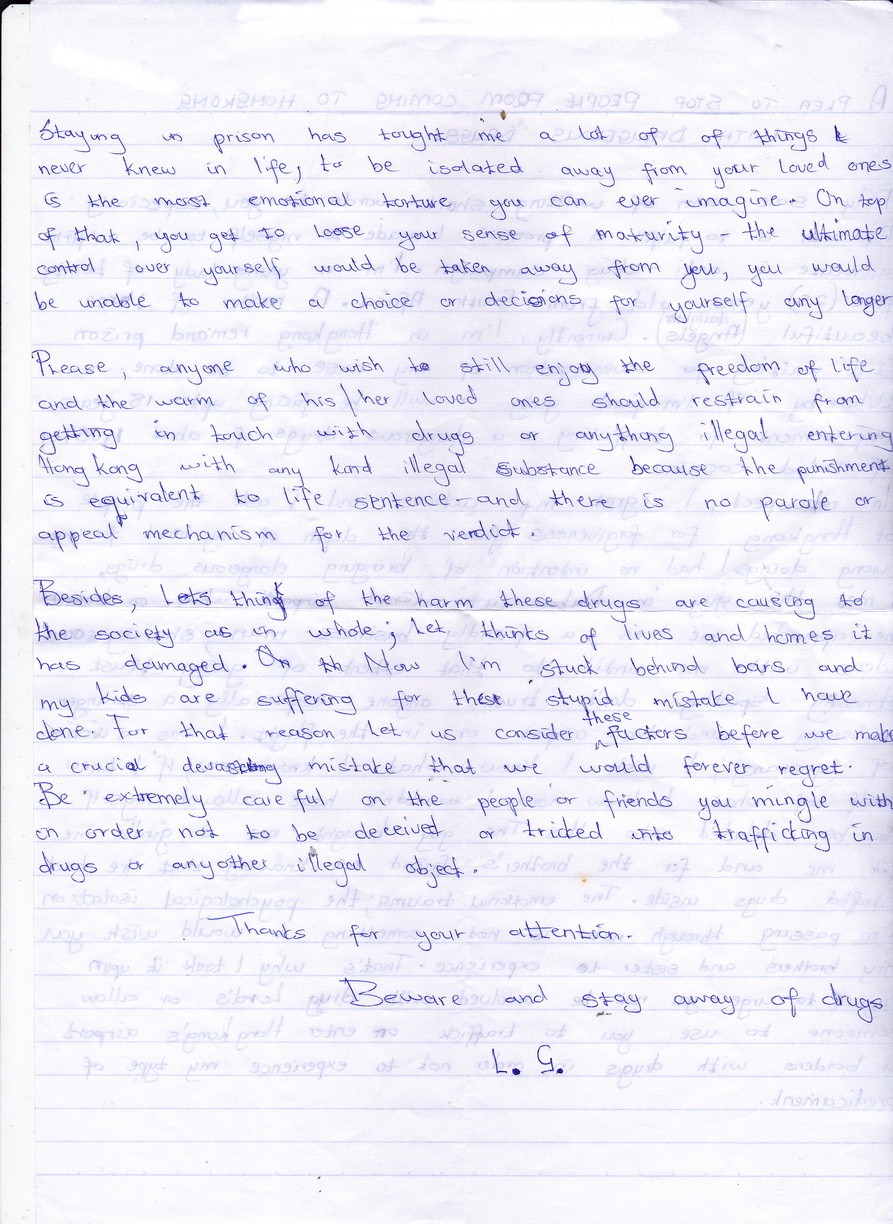 Staying in prison has tought me a lot of of things I
never knew in life, to be isolated away from your loved ones
is the most emotional torture you can ever imagine. On top
of that, you get to loose your sense of maturity - the ultimate
control over yourself would be taken away from you, you would
be unable to make a choice or decisions for yourself any longer
Please, anyone who wish to still enjoy the freedom of life
and the warm of his/her loved ones should restrain from
getting in touch with drugs a or anything illegal entering
Hong kong with any kind illegal substance because the punishment
is equivalent to life sentence - and there is no parole or
appeal mechanism for the verdict.
Besides, Lets think of the harm these drugs are causing to
the society as in whole; let, thinks of lives and homes it
has damaged. On th Now I'm stuck behind bars and
my kids are suffering for these stupid mistake I have
done. For that reason let us consider these factors before we make
a crucial devasting mistake that we would forever regret.
Be extremely careful on the people or friends you mingle with
on order not to be deceived or tricked into trafficking in
drugs or anyother illegal object.
Thanks for your attention.
Beware and stay away of drugs
L. G.